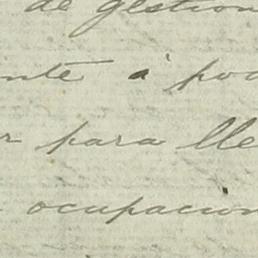 de gestion
nte á pod
r para lle
ocupacion